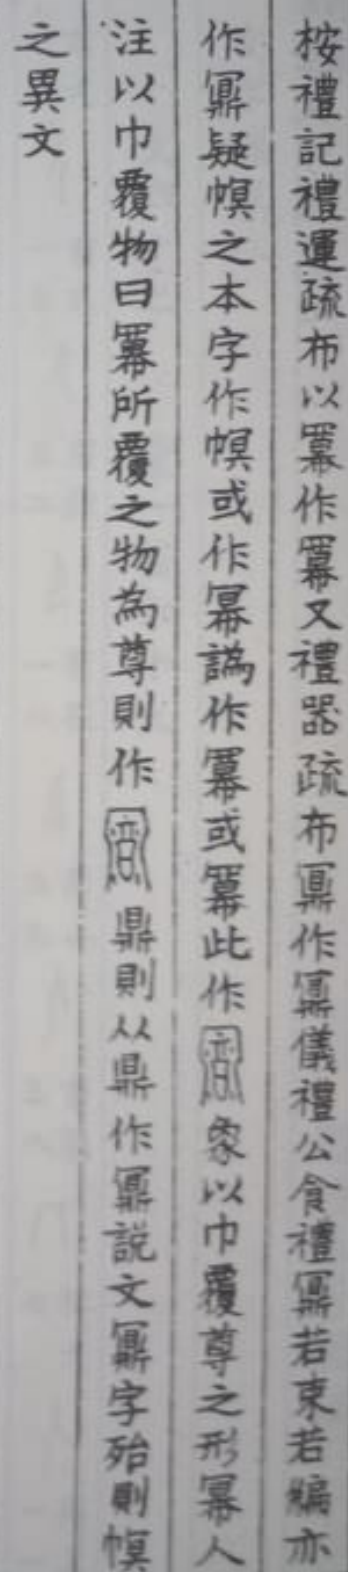 桉禮記禮運疏布以羃作羃又禮器疏布鼏作鼏儀禮公食禮鼏若束若編亦
作鼏疑幎之本字作幎或作冪譌作羃或羃此作象以巾覆尊之形冪人
注以巾覆物曰羃所覆之物為尊則作鼎則从鼎作鼏説文鼏字殆則幎
之異文